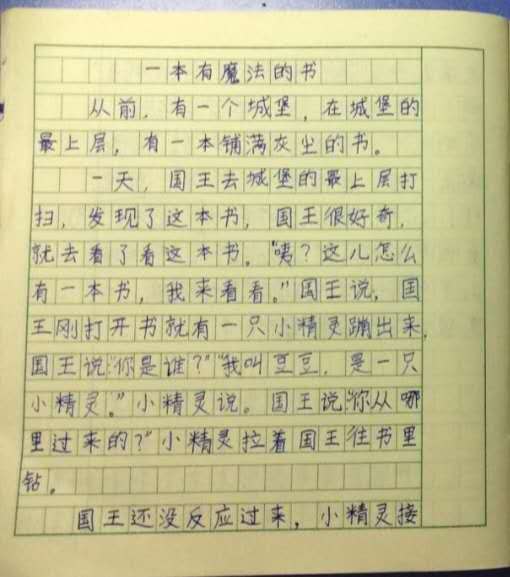 一本有魔法的书
从前，有一个城堡，在城堡的
最上层，有一本铺满灰尘的书。
一天，国王去城堡的最上层打
扫，发现了这本书，国王很好奇，
就去看了看这本书。“咦？这儿怎么
有一本书，我来看看。”国王说，国
王刚打开书就有一只小精灵蹦出来，
国王说“你是谁？”“我叫豆豆，是一只
小精灵。”小精灵说。国王说“你从哪
里过来的？”小精灵拉着国王往书里
钻。
国王还没反应过来，小精灵接